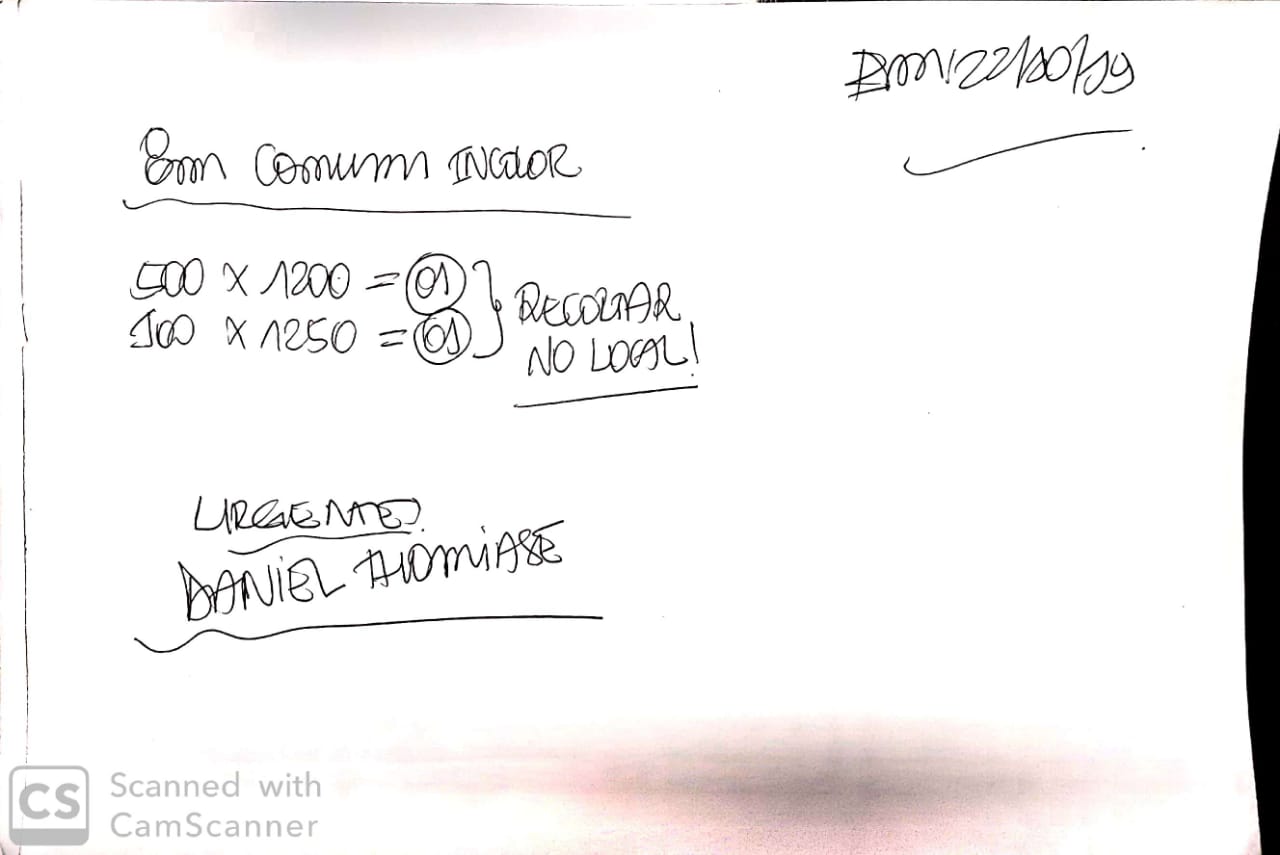 22/10/19
8mm Comum INCOLOR
500 X 1200 = 01
X 1250 = 01
RECORTAR
NO LOCAL!
URGENTE
DANIEL
CS Scanned with
CamScanner